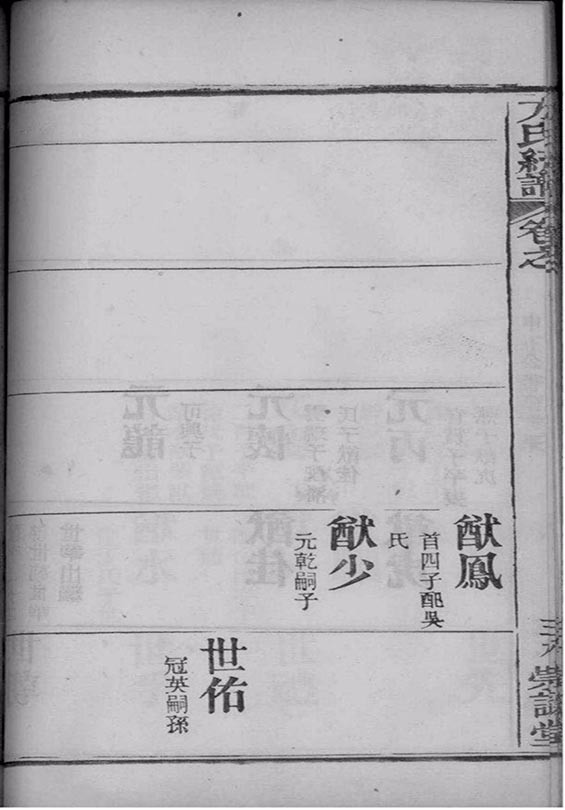 方氏統譜 卷之
三八 崇誼堂
猷鳳
首四子配吳
氏
猷少
元乾嗣子
世佑
冠英嗣孫